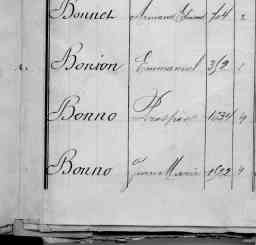 Bonnet Armand 704 2
Bonion Emmanuel 352
Bonno Prosper 1534 9
Bonno Jean Marie 1592 9